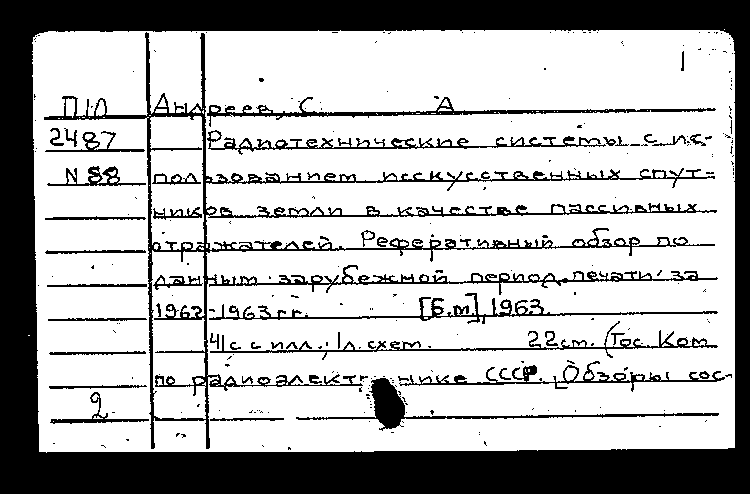 1
П10 Андреева, С. А
2487 Радиотехнические системы с ис-
N 88 пользованием исскусственных спут-
ников земли в качестве пассивных
отражателей. Реферативный обзор по
данным зарубежной период. печати за
1962-1963 гг. [Б.м], 1963.
41 с с илл.; 1 л. схем. 22 см. (Гос. Ком
по радиоэлектронике СССР. Обзоры сос-
2